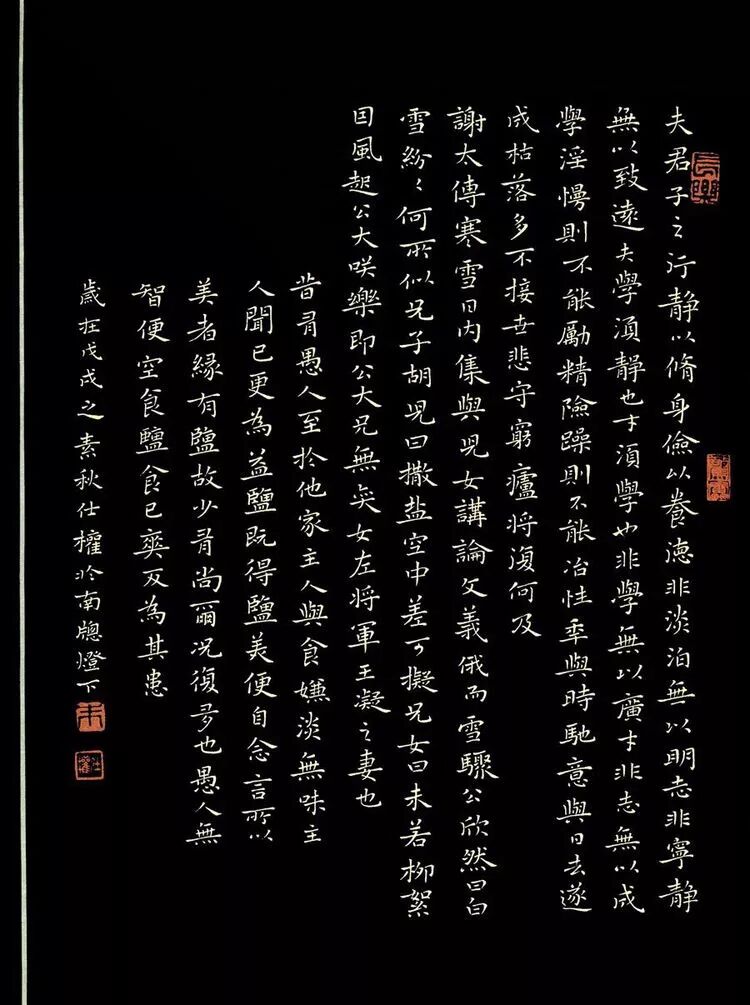 夫君子之行静以脩身儉以養德非淡泊無以明志非寧静
無以致遠夫學湏静也才湏學也非學無以廣才非志無以成
學淫慢則不能勵精險躁則不能冶性年與時馳意與日去遂
成枯落多不接世悲守窮廬將復何及
謝太傅寒雪日内集與兒女講論文義俄而雪驟公欣然曰白
雪紛々何所似兄子胡兒曰撒盐空中差可擬兄女曰未若柳絮
因風起公大咲樂即公大兄無奕女左將軍王凝之妻也
昔有愚人至於他家主人與食嫌淡無味主
人聞已更為益鹽既得鹽美便自念言所以
美者緣有鹽故少有尚爾况復多也愚人無
智便空食鹽食已爽反為其患
歲在戊戌之素秋仕權於南牕燈下
長樂